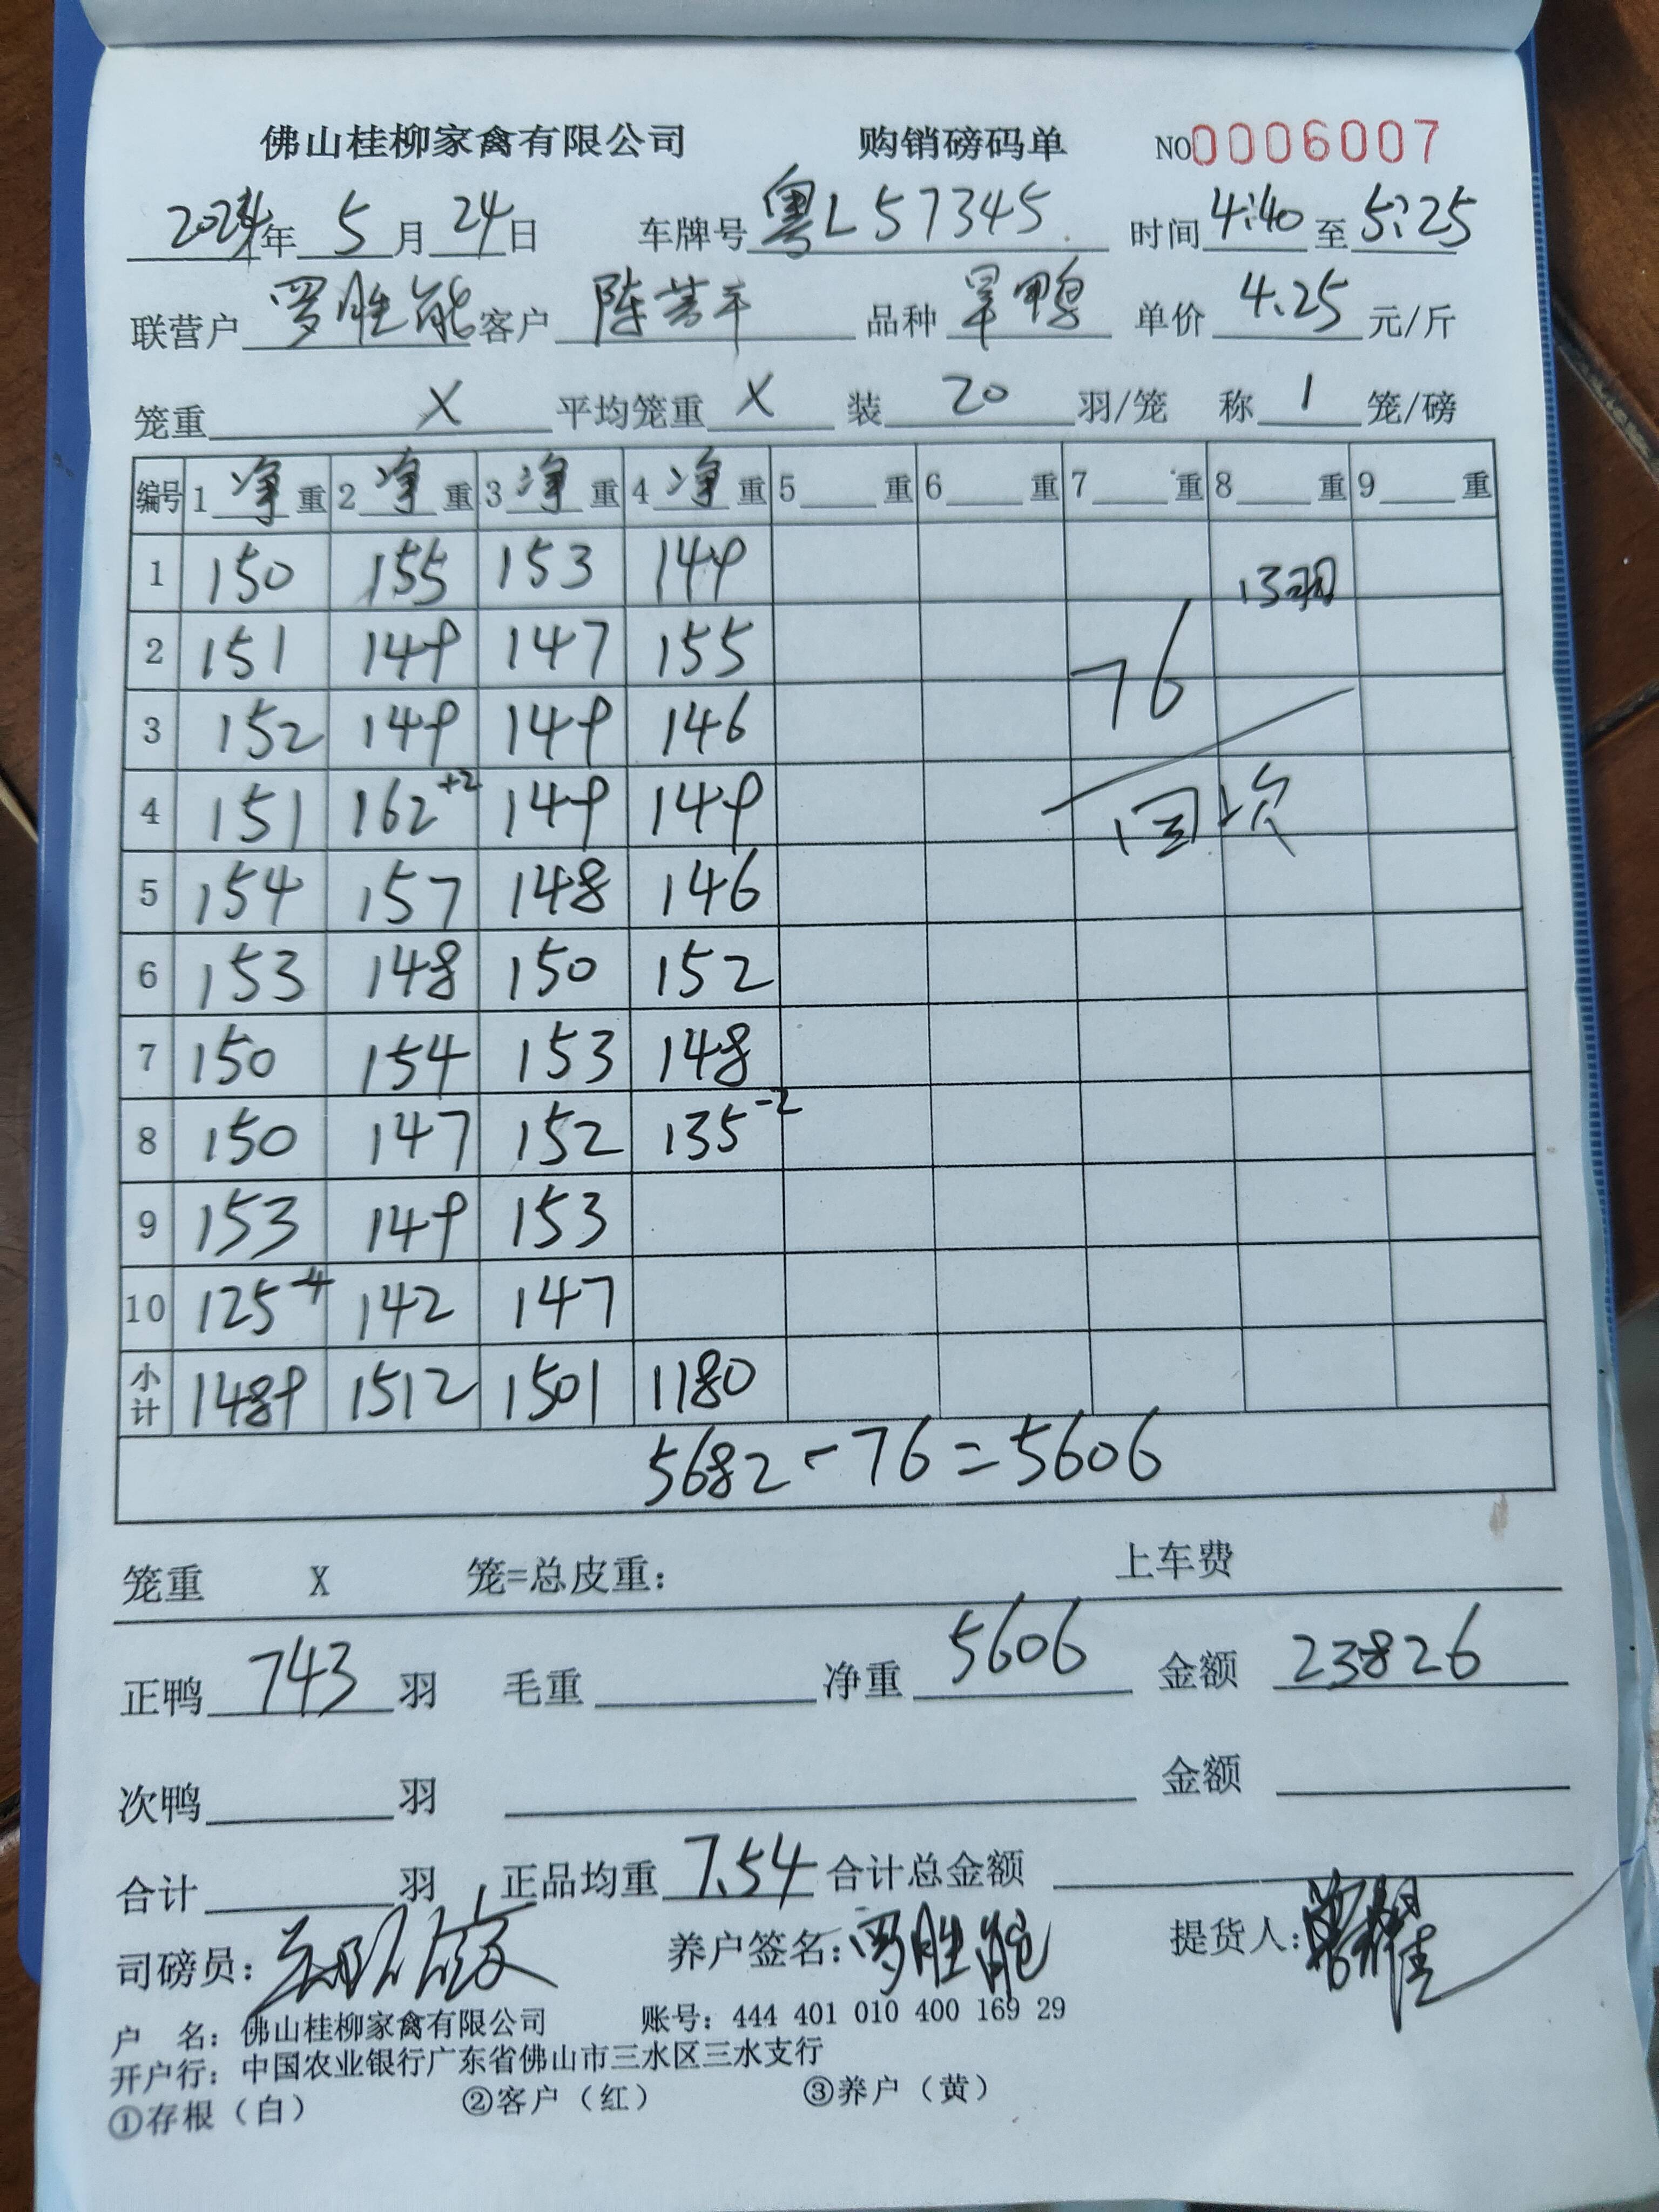 佛山桂柳家禽有限公司 购销磅码单 NO0006007
2024年 5月 24日 车牌号 粤L57345 时间 4:40 至 5:25
联营户 罗胜能 客户 陈芳平 品种 旱鸭 单价 4.25 元/斤
笼重 X 平均笼重 X 装 20 羽/笼 称 1 笼/磅
编号 1净重 2净重 3净重 4净重 5 重 6 重 7 重 8 重 9 重
1 150 155 153 149 13羽
2 151 149 147 155 76
3 152 149 149 146
4 151 162+2 149 149 回次
5 154 157 148 146
6 153 148 150 152
7 150 154 153 148
8 150 147 152 135-2
9 153 149 153
10 125-4 142 147
小计 1489 1512 1501 1180
5682-76=5606
笼重 X 笼=总皮重： 上车费
正鸭 743 羽 毛重 净重 5606 金额 23826
次鸭 羽 金额
合计 羽 正品均重 7.54 合计总金额
司磅员： 养户签名：罗胜能 提货人：
户 名：佛山桂柳家禽有限公司 账号：444 401 010 400 169 29
开户行：中国农业银行广东省佛山市三水区三水支行
①存根（白） ②客户（红） ③养户（黄）